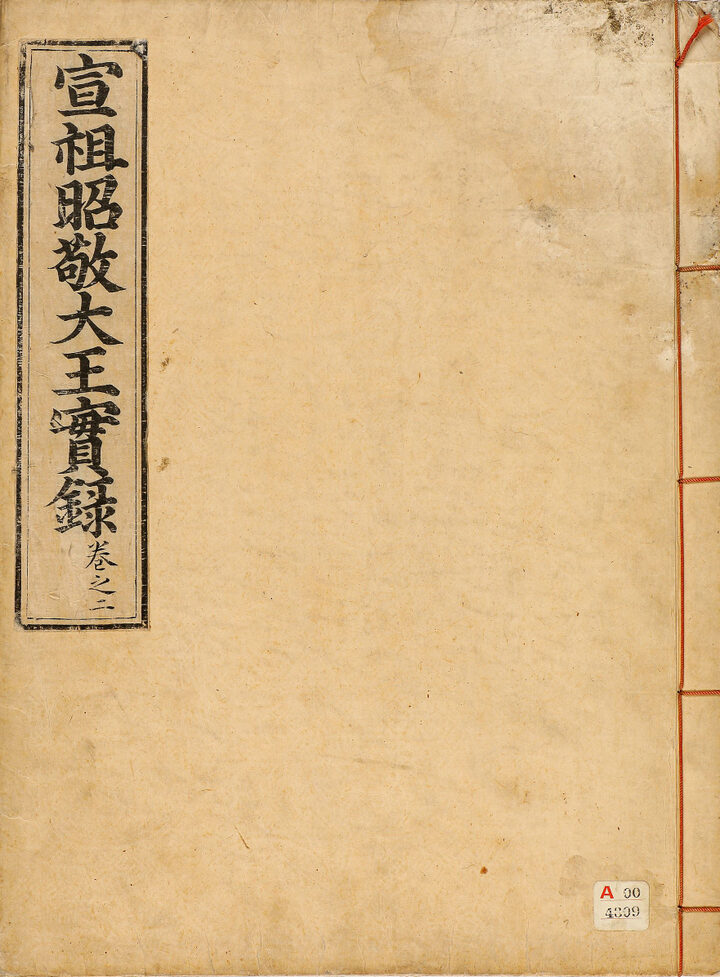 宣祖昭敬大王實錄
卷之二
A 00
4809